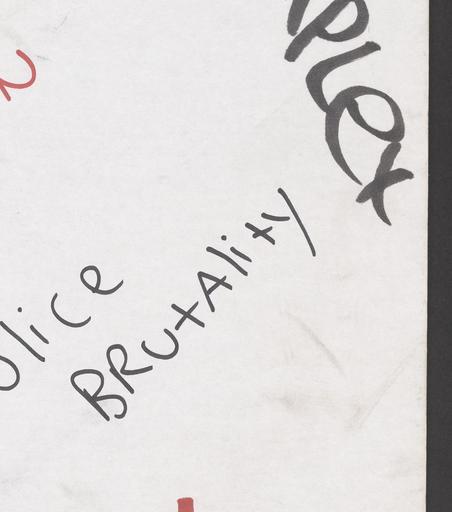 PLEX
olice
BRUtAlity